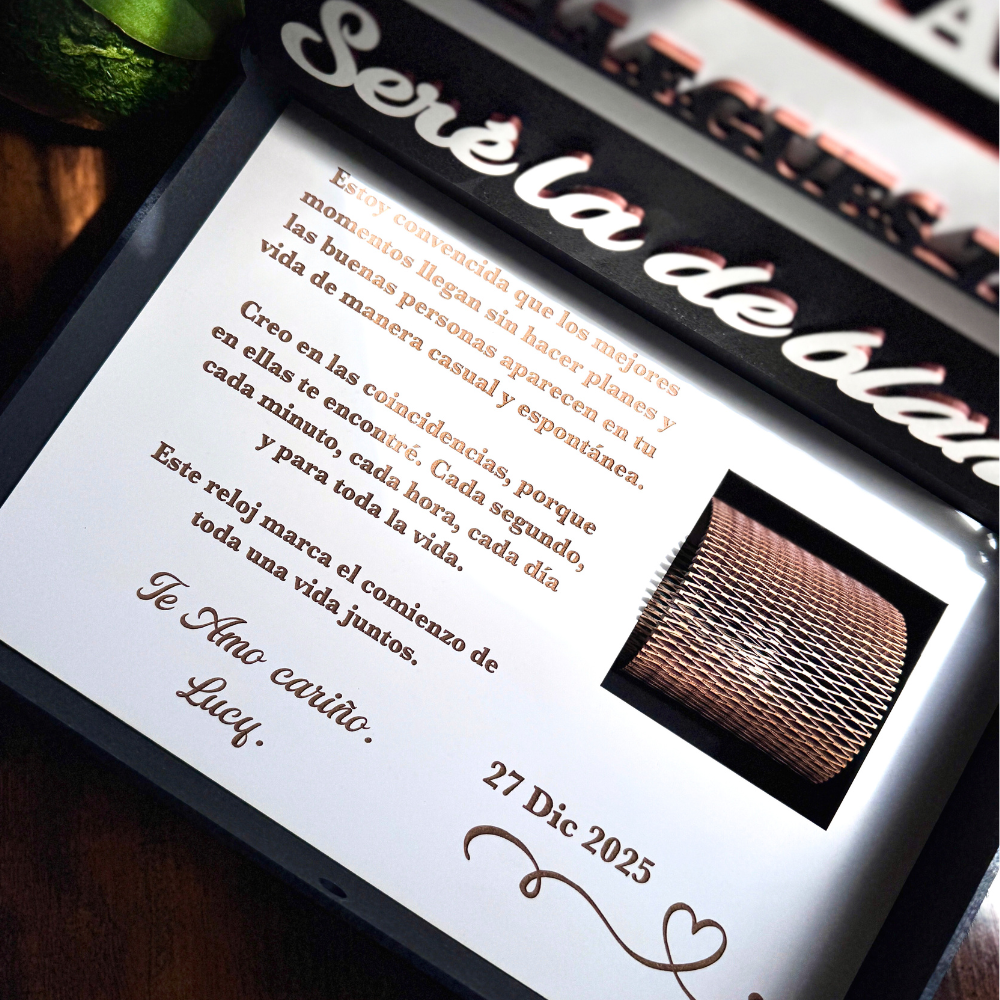 Seré la de
Estoy convencida que los mejores
momentos llegan sin hacer planes y
las buenas personas aparecen en tu
vida de manera casual y espontánea.
Creo en las coincidencias, porque
en ellas te encontré. Cada segundo,
cada minuto, cada hora, cada día
y para toda la vida.
Este reloj marca el comienzo de
toda una vida juntos.
Te Amo cariño.
Lucy.
27 Dic 2025